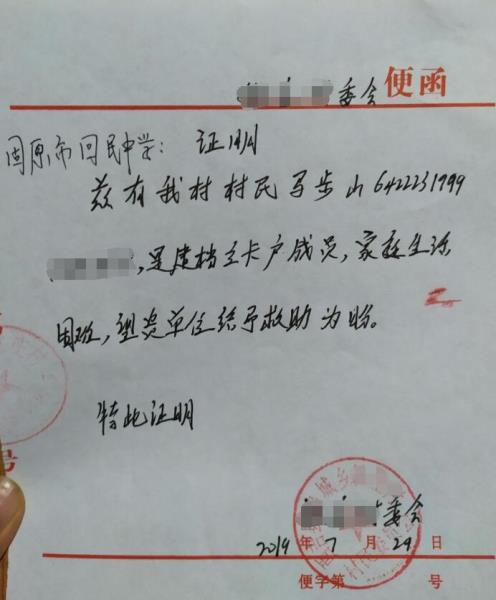 委会 便函
固原市回民中学: 证明
兹有我村村民马步山6422231999
,是建档立卡户成员,家庭生活
困难,望贵单位给予救助为盼。
特此证明
委会
2019年7月29日
便字第 号